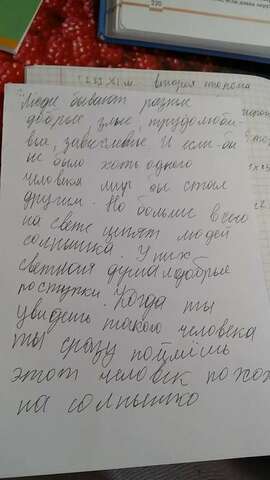 220
вторая сторона
Люди бывают разные
добрые злые, трудолюби-
вы, завистливые И если бы
не было хоть одного
человека мир бы стал
другим. Но больше всего
на свете ценят людей
солнышка У них
светлая душа и добрые
поступки. Когда ты
увидешь такого человека
ты сразу поймёшь
этот человек похож
на солнышко